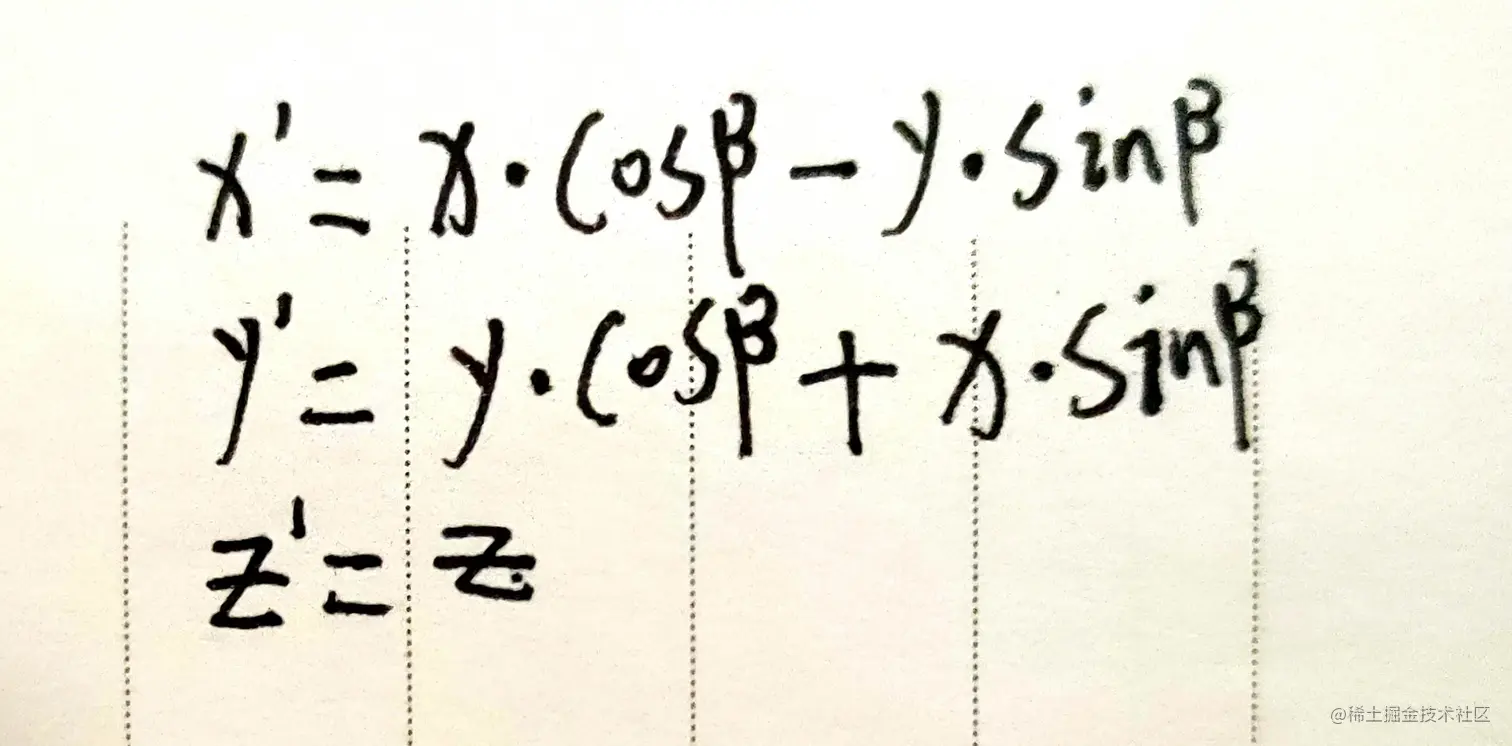 x' = x·cosβ − y·sinβ
y' = y·cosβ + x·sinβ
z' = z
@稀土掘金技术社区